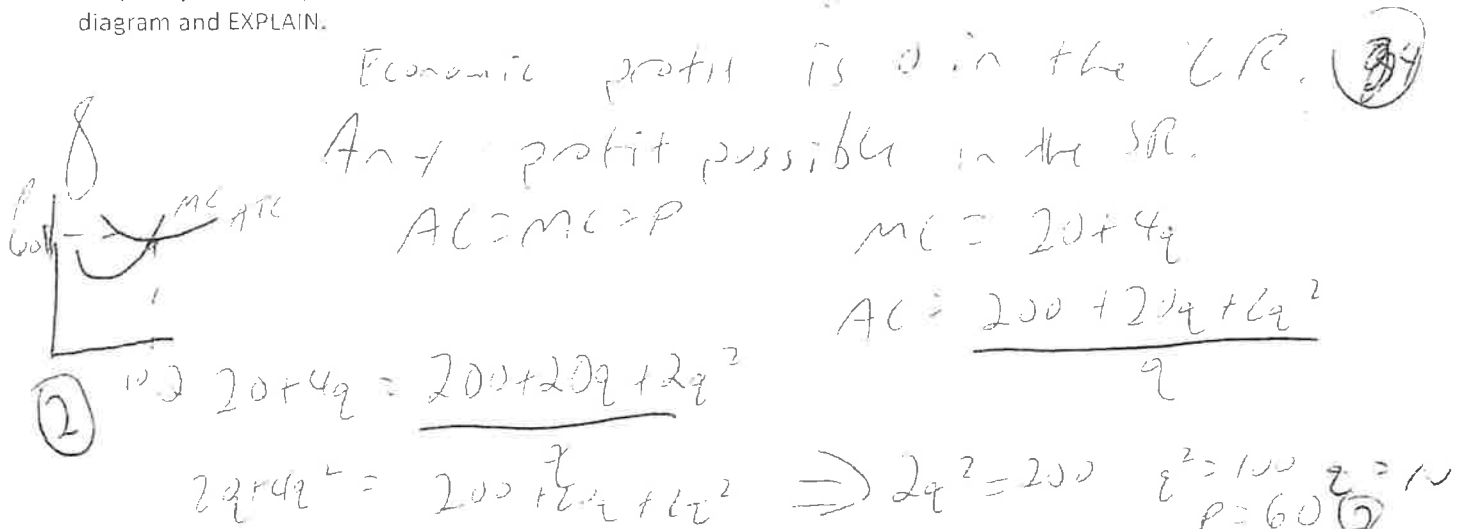 diagram and EXPLAIN.
Economic profit is 0 in the LR.
Any profit possible in the SR.
8
P
60
MC
ATC
AC = MC = P
MC = 20 + 4q
AC = 200 + 20q + 2q²
q
10
2
20 + 4q = 200 + 20q + 2q²
q
2q + 4q² = 200 + 2q + 2q² ⇒ 2q² = 200 q² = 100 q = 10
P = 60 2